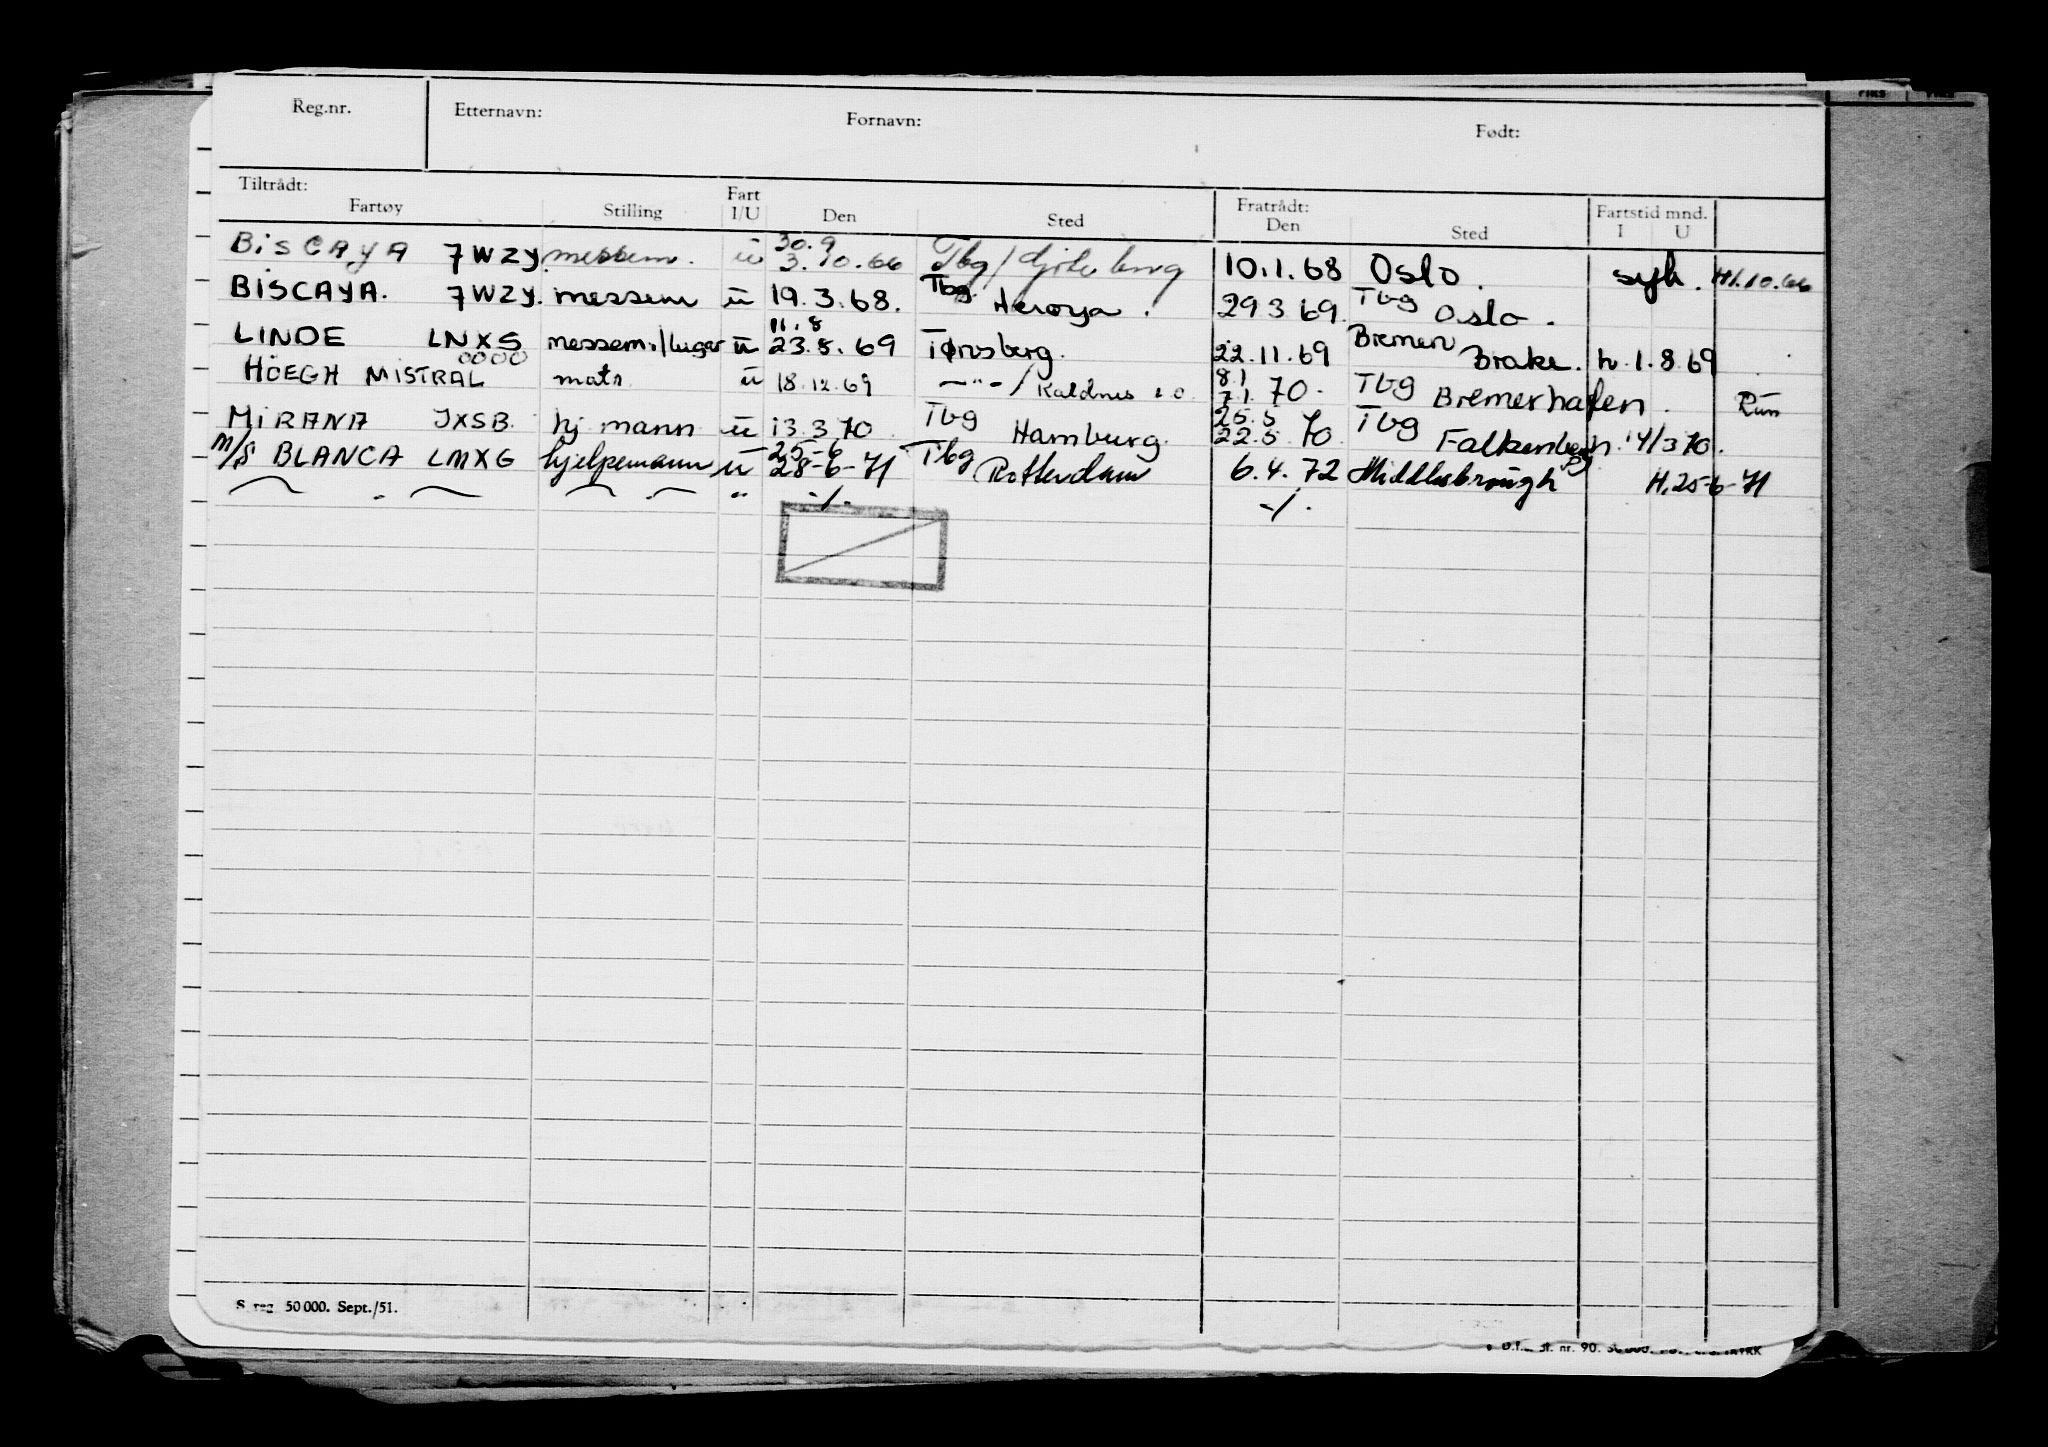 Reg.nr. Etternavn: Fornavn: Født:
Tiltrådt: Fartøy Stilling Fart I/U Den Sted Fratrådt: Den Sted Fartstid mnd. I U
BISCAYA 7WZY. messem. ü 30.9 3.10.66 Tbg/Gøteborg 10.1.68 Oslo. syk. H1.10.66
BISCAYA. 7WZY. messem ü 19.3.68. Tbg. Herøya. 29 3 69. Tbg Oslo.
LINDE LNXS messem./lugar ü 11.8 23.8.69 Tønsberg. 22.11.69 Bremen Brake. h.1.8.69
HÖEGH MISTRAL 0000 matr. ü 18.12.69 —"—/Kaldnes 8.1 7.1.70. Tbg Bremerhafen. Rün
MIRANA JXSB. hj mann ü 13.3.70 Tbg Hamburg. 25.5 22.5.70. Tbg Falkenberg h.14/3 70.
M/S BLANCA LMXG hjelpemann ü 25-6 28-6-71 Tbg Rotterdam 6.4.72 Middlesbrough H.25-6-71
" " " -/. -/.
S. reg. 50 000. Sept./51.